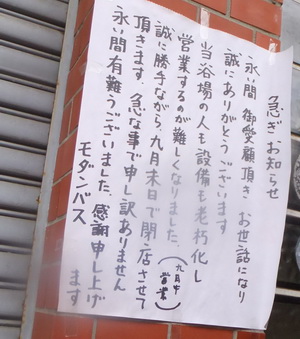 急ぎお知らせ
永い間 御愛顧頂き お世話になり
誠にありがとうございます
当浴場の人も設備も老朽化し
営業するのが難しくなりました。
(九月中営業)
誠に勝手ながら、九月末日で閉店させて
頂きます。急な事で申し訳ありません
永い間有難うございました。感謝申し上げ
ます
モダンバス